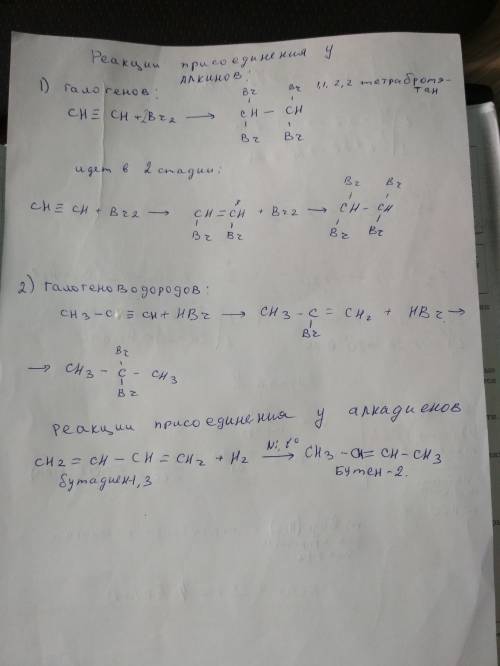 Реакции присоединения у
алкинов:
1) галогенов:
Br Br 1,1,2,2 тетрабромэ-
тан
CH≡CH + 2Br₂ → CH – CH
Br Br
идет в 2 стадии:
Br Br
CH≡CH + Br₂ → CH = CH + Br₂ → CH – CH
Br Br Br Br
2) галогеноводородов:
CH₃ – C ≡ CH + HBr → CH₃ – C = CH₂ + HBr →
Br
Br
→ CH₃ – C – CH₃
Br
реакции присоединения у алкадиенов
CH₂ = CH – CH = CH₂ + H₂ Ni, t° → CH₃ – CH = CH – CH₃
бутадиен-1,3 бутен-2.